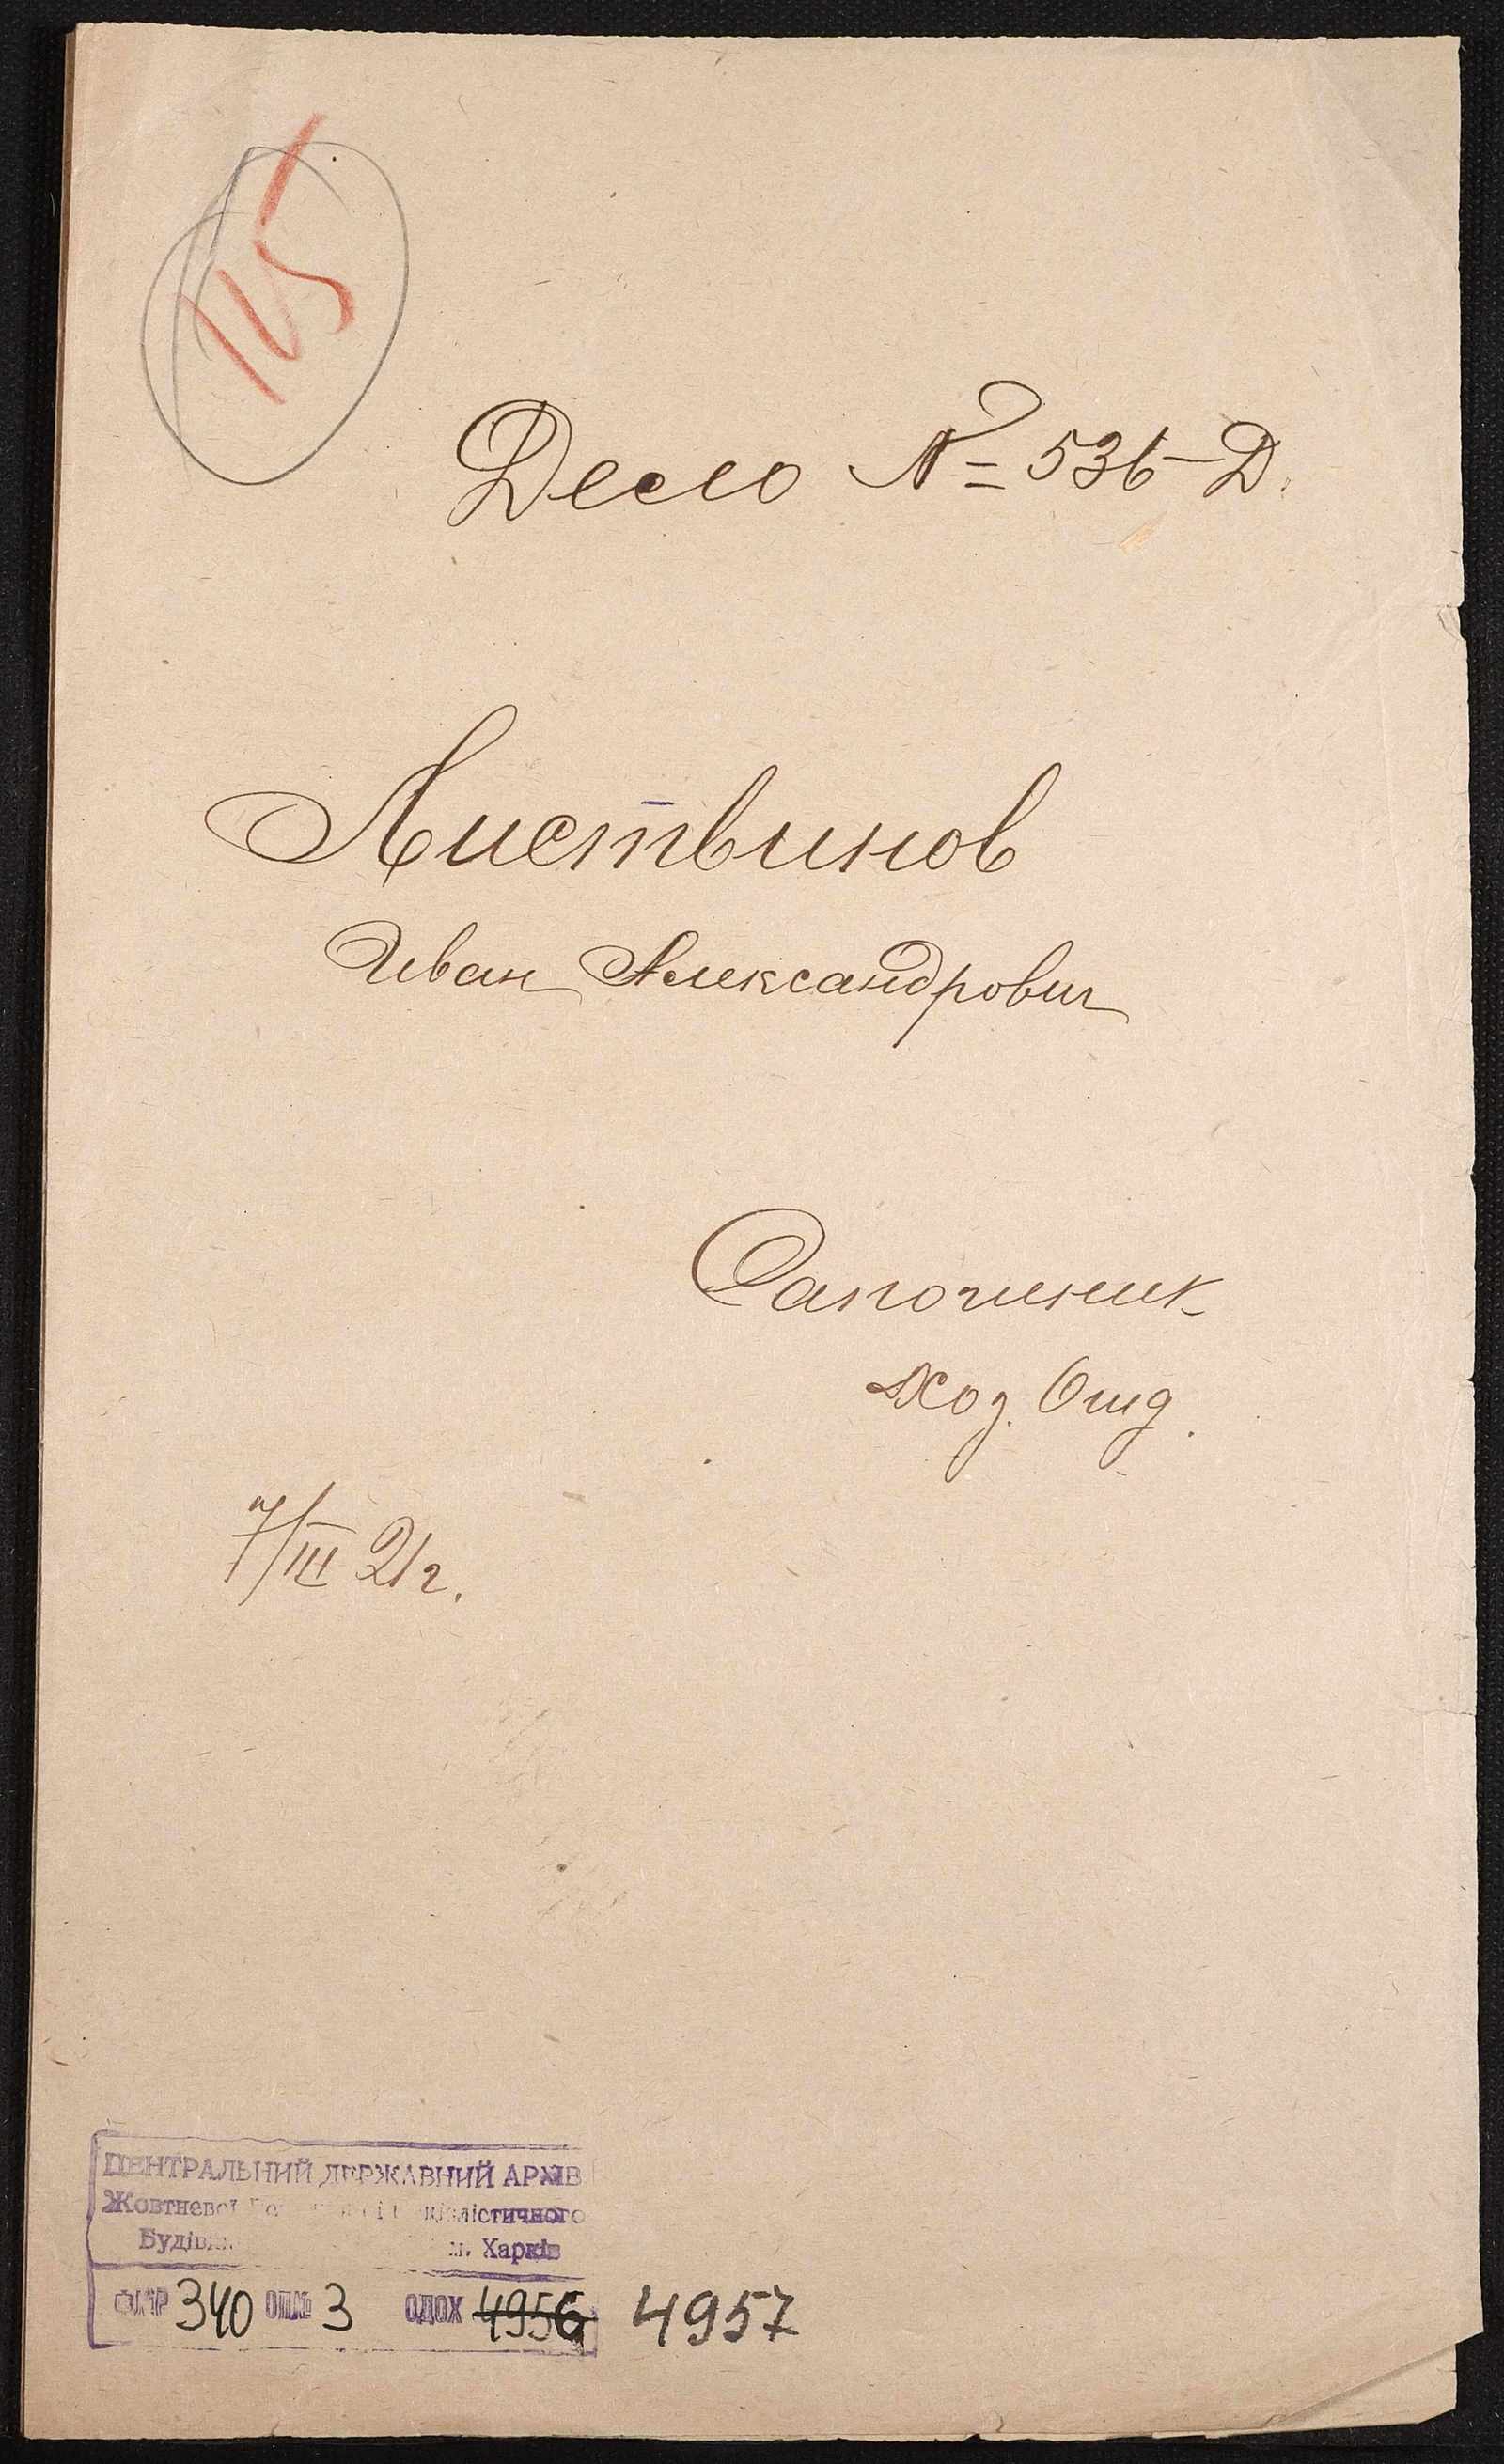 Дело № 536-Д.
Листвинов
Иван Александрович
Сапожник
Хоз. Отд.
7/III 21 г.
ЦЕНТРАЛЬНИЙ ДЕРЖАВНИЙ АРХІВ
Жовтневої і соціалістичного
м. Харків
340 3 ОДОХ 4956 4957